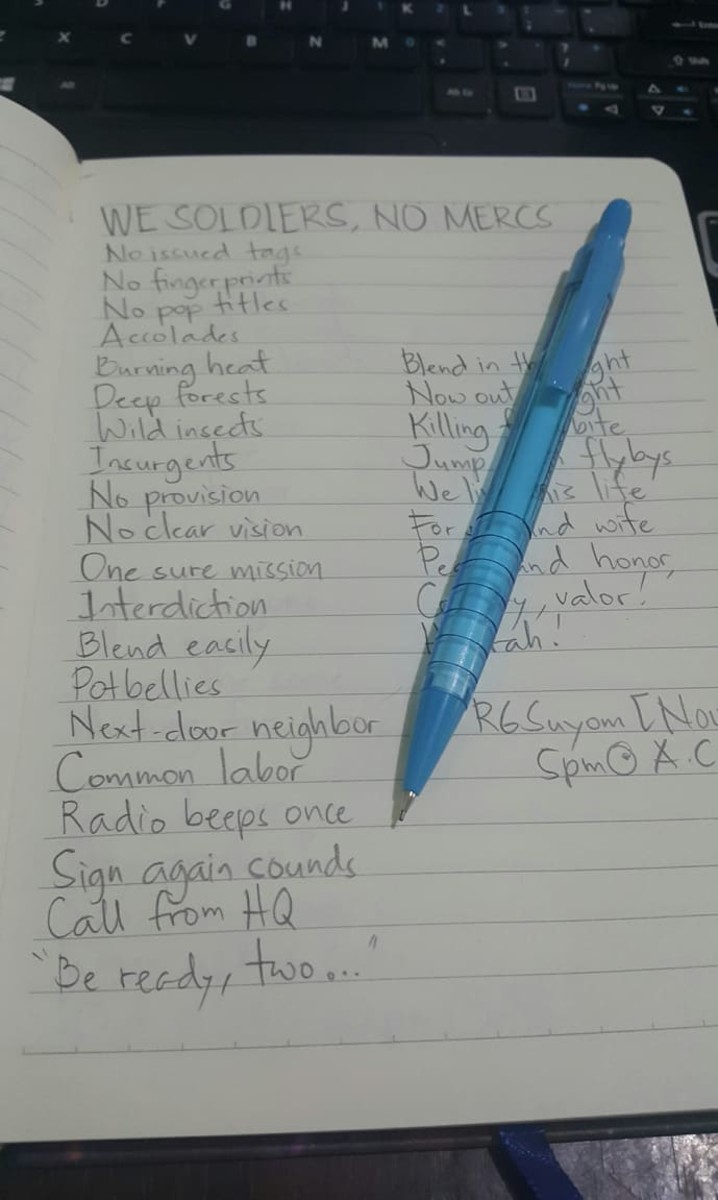 WE SOLDIERS, NO MERCS
No issued tags
No fingerprints
No pop titles
Accolades
Burning heat
Deep forests
Wild insects
Insurgents
No provision
No clear vision
One sure mission
Interdiction
Blend easily
Potbellies
Next-door neighbor
Common labor
Radio beeps once
Sign again sounds
Call from HQ
"Be ready, two..."
Blend in
Now out
Killing bite
Jump flybys
We life
For wife
and honor,
valor!
R6Suyom [Nov
5pm@ A.C